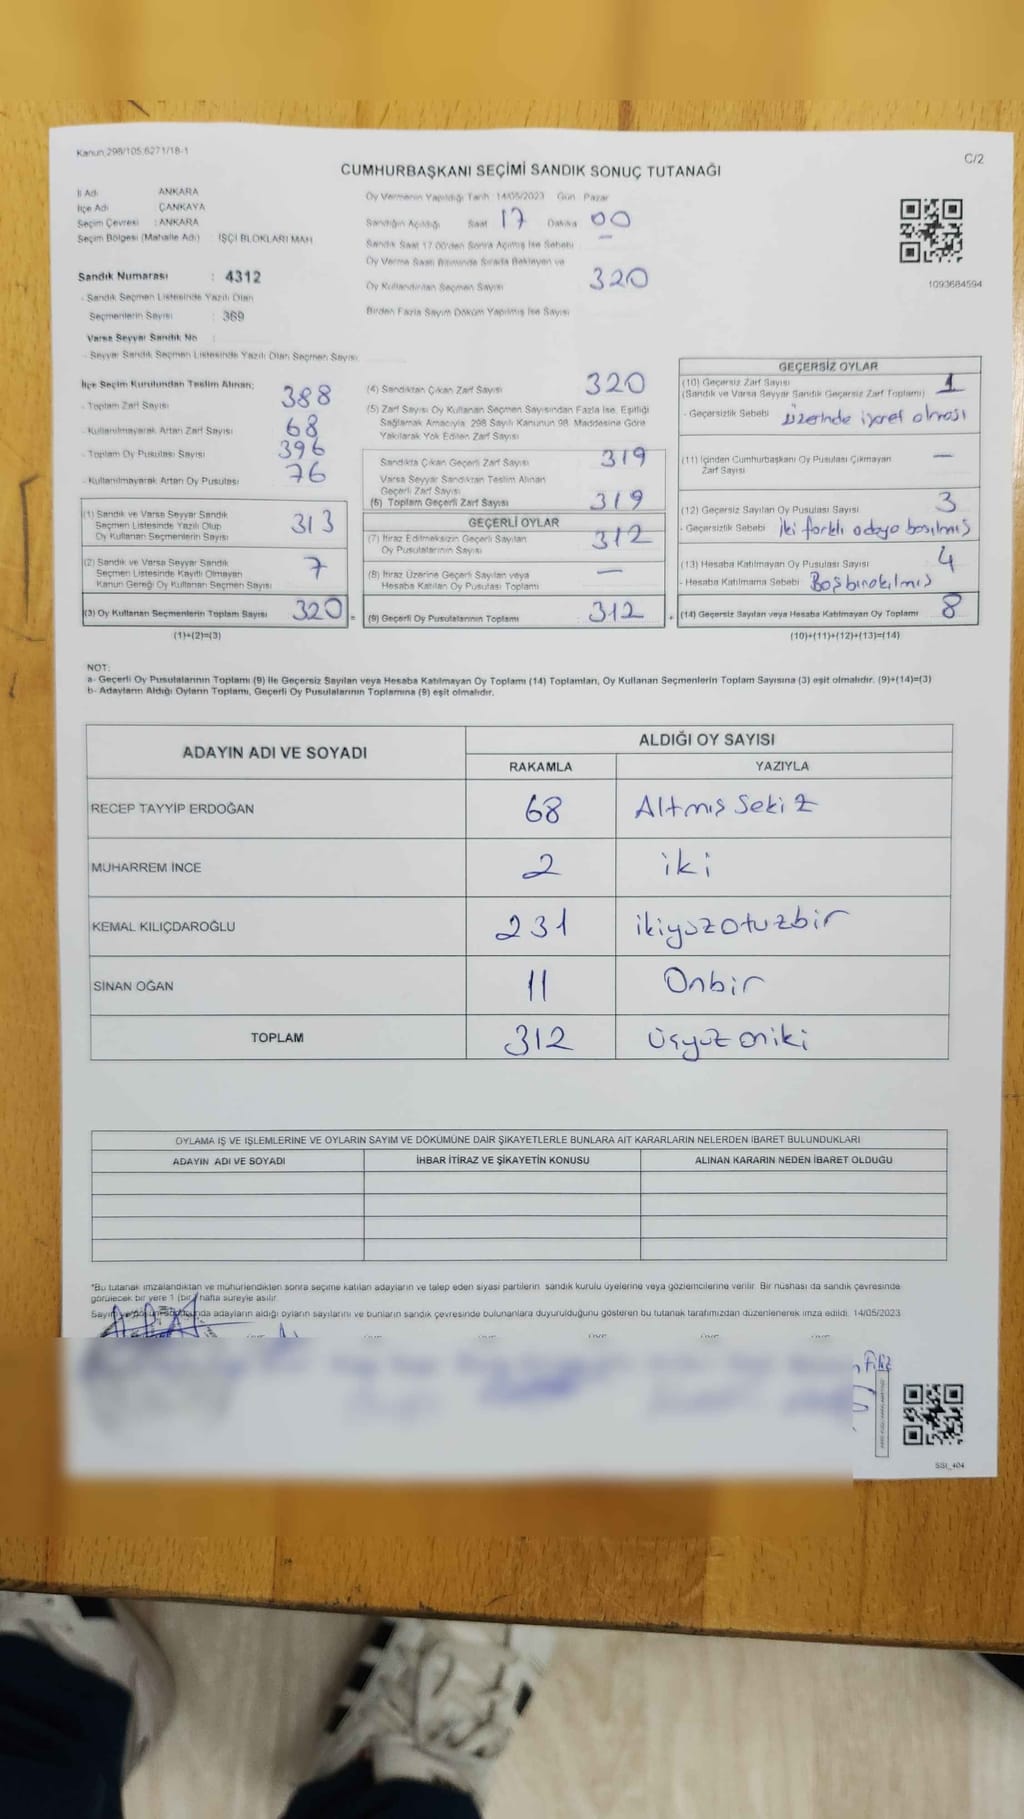 Kanun 298/105.6271/18-1
C/2
CUMHURBAŞKANI SEÇİMİ SANDIK SONUÇ TUTANAĞI
İl Adı ANKARA
İlçe Adı ÇANKAYA
Seçim Çevresi : ANKARA
Seçim Bölgesi (Mahalle Adı) İŞÇİ BLOKLARI MAH
Sandık Numarası : 4312
- Sandık Seçmen Listesinde Yazılı Olan
Seçmenlerin Sayısı : 369
Varsa Seyyar Sandık No :
- Seyyar Sandık Seçmen Listesinde Yazılı Olan Seçmen Sayısı
Oy Vermenin Yapıldığı Tarih 14/05/2023 Gün Pazar
Sandığın Açıldığı Saat 17 Dakika 00
Sandık Saat 17.00'den Sonra Açılmış İse Sebebi —
Oy Verme Saati Bitiminde Sırada Bekleyen ve
Oy Kullandırılan Seçmen Sayısı 320
Birden Fazla Sayım Döküm Yapılmış İse Sayısı
1093684594
İlçe Seçim Kurulundan Teslim Alınan;
- Toplam Zarf Sayısı 388
- Kullanılmayarak Artan Zarf Sayısı 68
- Toplam Oy Pusulası Sayısı 396
- Kullanılmayarak Artan Oy Pusulası 76
(1) Sandık ve Varsa Seyyar Sandık
Seçmen Listesinde Yazılı Olup
Oy Kullanan Seçmenlerin Sayısı 313
(2) Sandık ve Varsa Seyyar Sandık
Seçmen Listesinde Kayıtlı Olmayan
Kanun Gereği Oy Kullanan Seçmen Sayısı 7
(3) Oy Kullanan Seçmenlerin Toplam Sayısı 320 =
(1)+(2)=(3)
(4) Sandıktan Çıkan Zarf Sayısı 320
(5) Zarf Sayısı Oy Kullanan Seçmen Sayısından Fazla İse, Eşitliği
Sağlamak Amacıyla, 298 Sayılı Kanunun 98. Maddesine Göre
Yakılarak Yok Edilen Zarf Sayısı
Sandıkta Çıkan Geçerli Zarf Sayısı 319
Varsa Seyyar Sandıktan Teslim Alınan
Geçerli Zarf Sayısı
(6) Toplam Geçerli Zarf Sayısı 319
GEÇERLİ OYLAR
(7) İtiraz Edilmeksizin Geçerli Sayılan
Oy Pusulalarının Sayısı 312
(8) İtiraz Üzerine Geçerli Sayılan veya
Hesaba Katılan Oy Pusulası Toplamı —
(9) Geçerli Oy Pusulalarının Toplamı 312 +
GEÇERSİZ OYLAR
(10) Geçersiz Zarf Sayısı
(Sandık ve Varsa Seyyar Sandık Geçersiz Zarf Toplamı) 1
- Geçersizlik Sebebi Üzerinde işaret olması
(11) İçinden Cumhurbaşkanı Oy Pusulası Çıkmayan
Zarf Sayısı —
(12) Geçersiz Sayılan Oy Pusulası Sayısı 3
- Geçersizlik Sebebi İki farklı adaya basılmış
(13) Hesaba Katılmayan Oy Pusulası Sayısı 4
- Hesaba Katılmama Sebebi Boş bırakılmış
(14) Geçersiz Sayılan veya Hesaba Katılmayan Oy Toplamı 8
(10)+(11)+(12)+(13)=(14)
NOT:
a- Geçerli Oy Pusulalarının Toplamı (9) ile Geçersiz Sayılan veya Hesaba Katılmayan Oy Toplamı (14) Toplamları, Oy Kullanan Seçmenlerin Toplam Sayısına (3) eşit olmalıdır. (9)+(14)=(3)
b- Adayların Aldığı Oyların Toplamı, Geçerli Oy Pusulalarının Toplamına (9) eşit olmalıdır.
ADAYIN ADI VE SOYADI
ALDIĞI OY SAYISI
RAKAMLA YAZIYLA
RECEP TAYYİP ERDOĞAN 68 Altmış Sekiz
MUHARREM İNCE 2 iki
KEMAL KILIÇDAROĞLU 231 ikiyüzotuzbir
SİNAN OĞAN 11 Onbir
TOPLAM 312 Üçyüz oniki
OYLAMA İŞ VE İŞLEMLERİNE VE OYLARIN SAYIM VE DÖKÜMÜNE DAİR ŞİKAYETLERLE BUNLARA AİT KARARLARIN NELERDEN İBARET BULUNDUKLARI
ADAYIN ADI VE SOYADI İHBAR İTİRAZ VE ŞİKAYETİN KONUSU ALINAN KARARIN NEDEN İBARET OLDUĞU
*Bu tutanak imzalandıktan ve mühürlendikten sonra seçime katılan adayların ve talep eden siyasi partilerin sandık kurulu üyelerine veya gözlemcilerine verilir. Bir nüshası da sandık çevresinde
görülecek bir yere 1 (bir) hafta süreyle asılır.
Sayım ve döküm sonunda adayların aldığı oyların sayılarını ve bunların sandık çevresinde bulunanlara duyurulduğunu gösteren bu tutanak tarafımızdan düzenlenerek imza edildi. 14/05/2023
Filiz
SSI_404